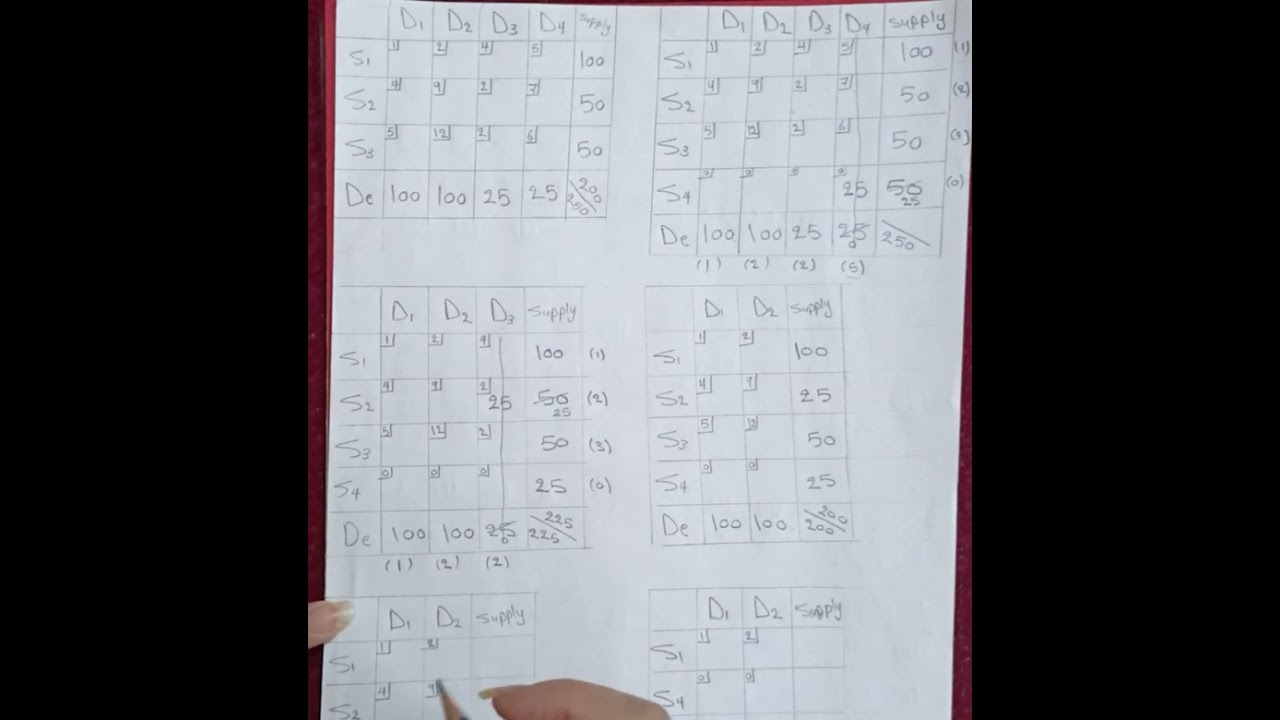 D1 D2 D3 D4 Supply
S1 1 2 4 5 100
S2 4 9 2 7 50
S3 5 12 2 6 50
De 100 100 25 25 200 250
D1 D2 D3 D4 Supply
S1 1 2 4 5 100 (1)
S2 4 9 2 7 50 (2)
S3 5 12 2 6 50 (3)
S4 0 0 0 0 25 50 25 (0)
De 100 100 25 25 0 250
(1) (2) (2) (5)
D1 D2 D3 Supply
S1 1 2 4 100 (1)
S2 4 9 2 25 50 25 (2)
S3 5 12 2 50 (3)
S4 0 0 0 25 (0)
De 100 100 25 0 225 225
(1) (2) (2)
D1 D2 Supply
S1 1 2 100
S2 4 9 25
S3 5 12 50
S4 0 0 25
De 100 100 200 200
D1 D2 Supply
S1 1 2
S2 4 9
D1 D2 Supply
S1 1 2
S4 0 0